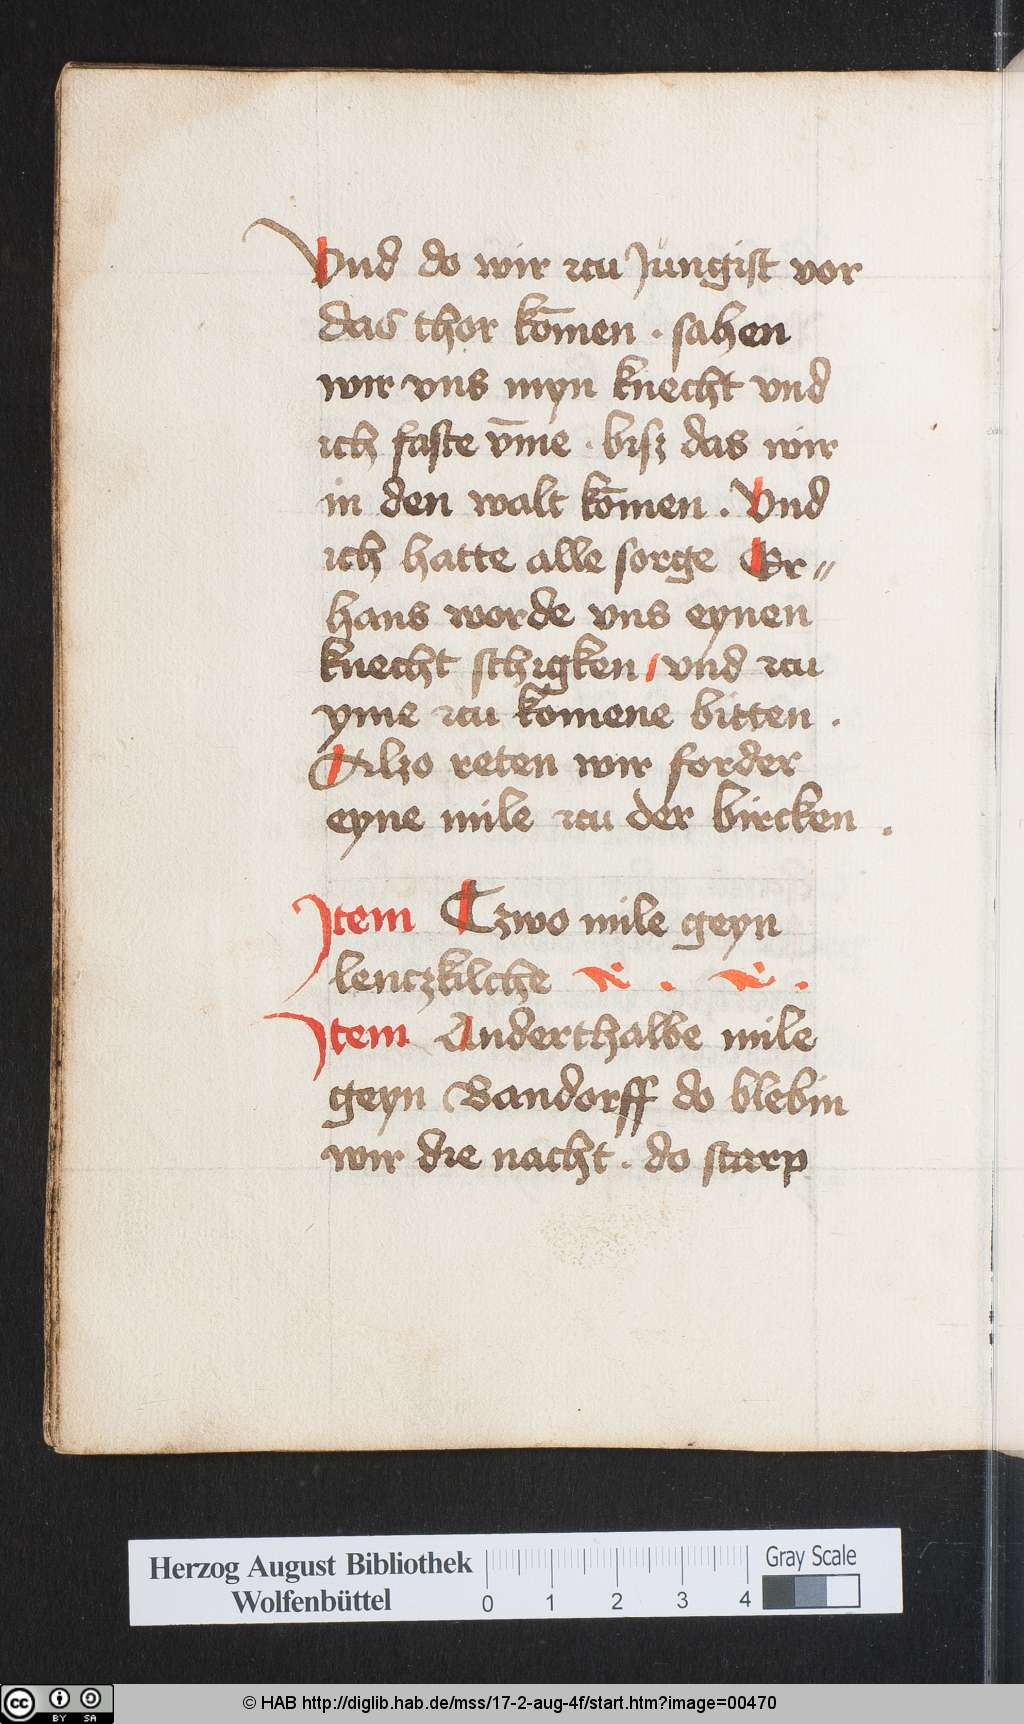 Vnd do wir czu Jungist vor
das thor kōmen · sahen
wir vns myn knecht vnd
ich faste v̄me · bisz das wir
in den walt kōmen . Vnd
ich hatte alle sorge Er⸗
hans worde vns eynen
knecht schigken / vnd czu
yme czu kōmene bitten .
Alzo reten wir forder
eyne mile czu der bircken .
Item Czwo mile geyn
lenczkilche
Item Anderthalbe mile
geyn Bandorff do blebin
wir die nacht . do starp
Herzog August Bibliothek
Wolfenbüttel
0 1 2 3 4
Gray Scale
cc BY SA
© HAB http://diglib.hab.de/mss/17-2-aug-4f/start.htm?image=00470